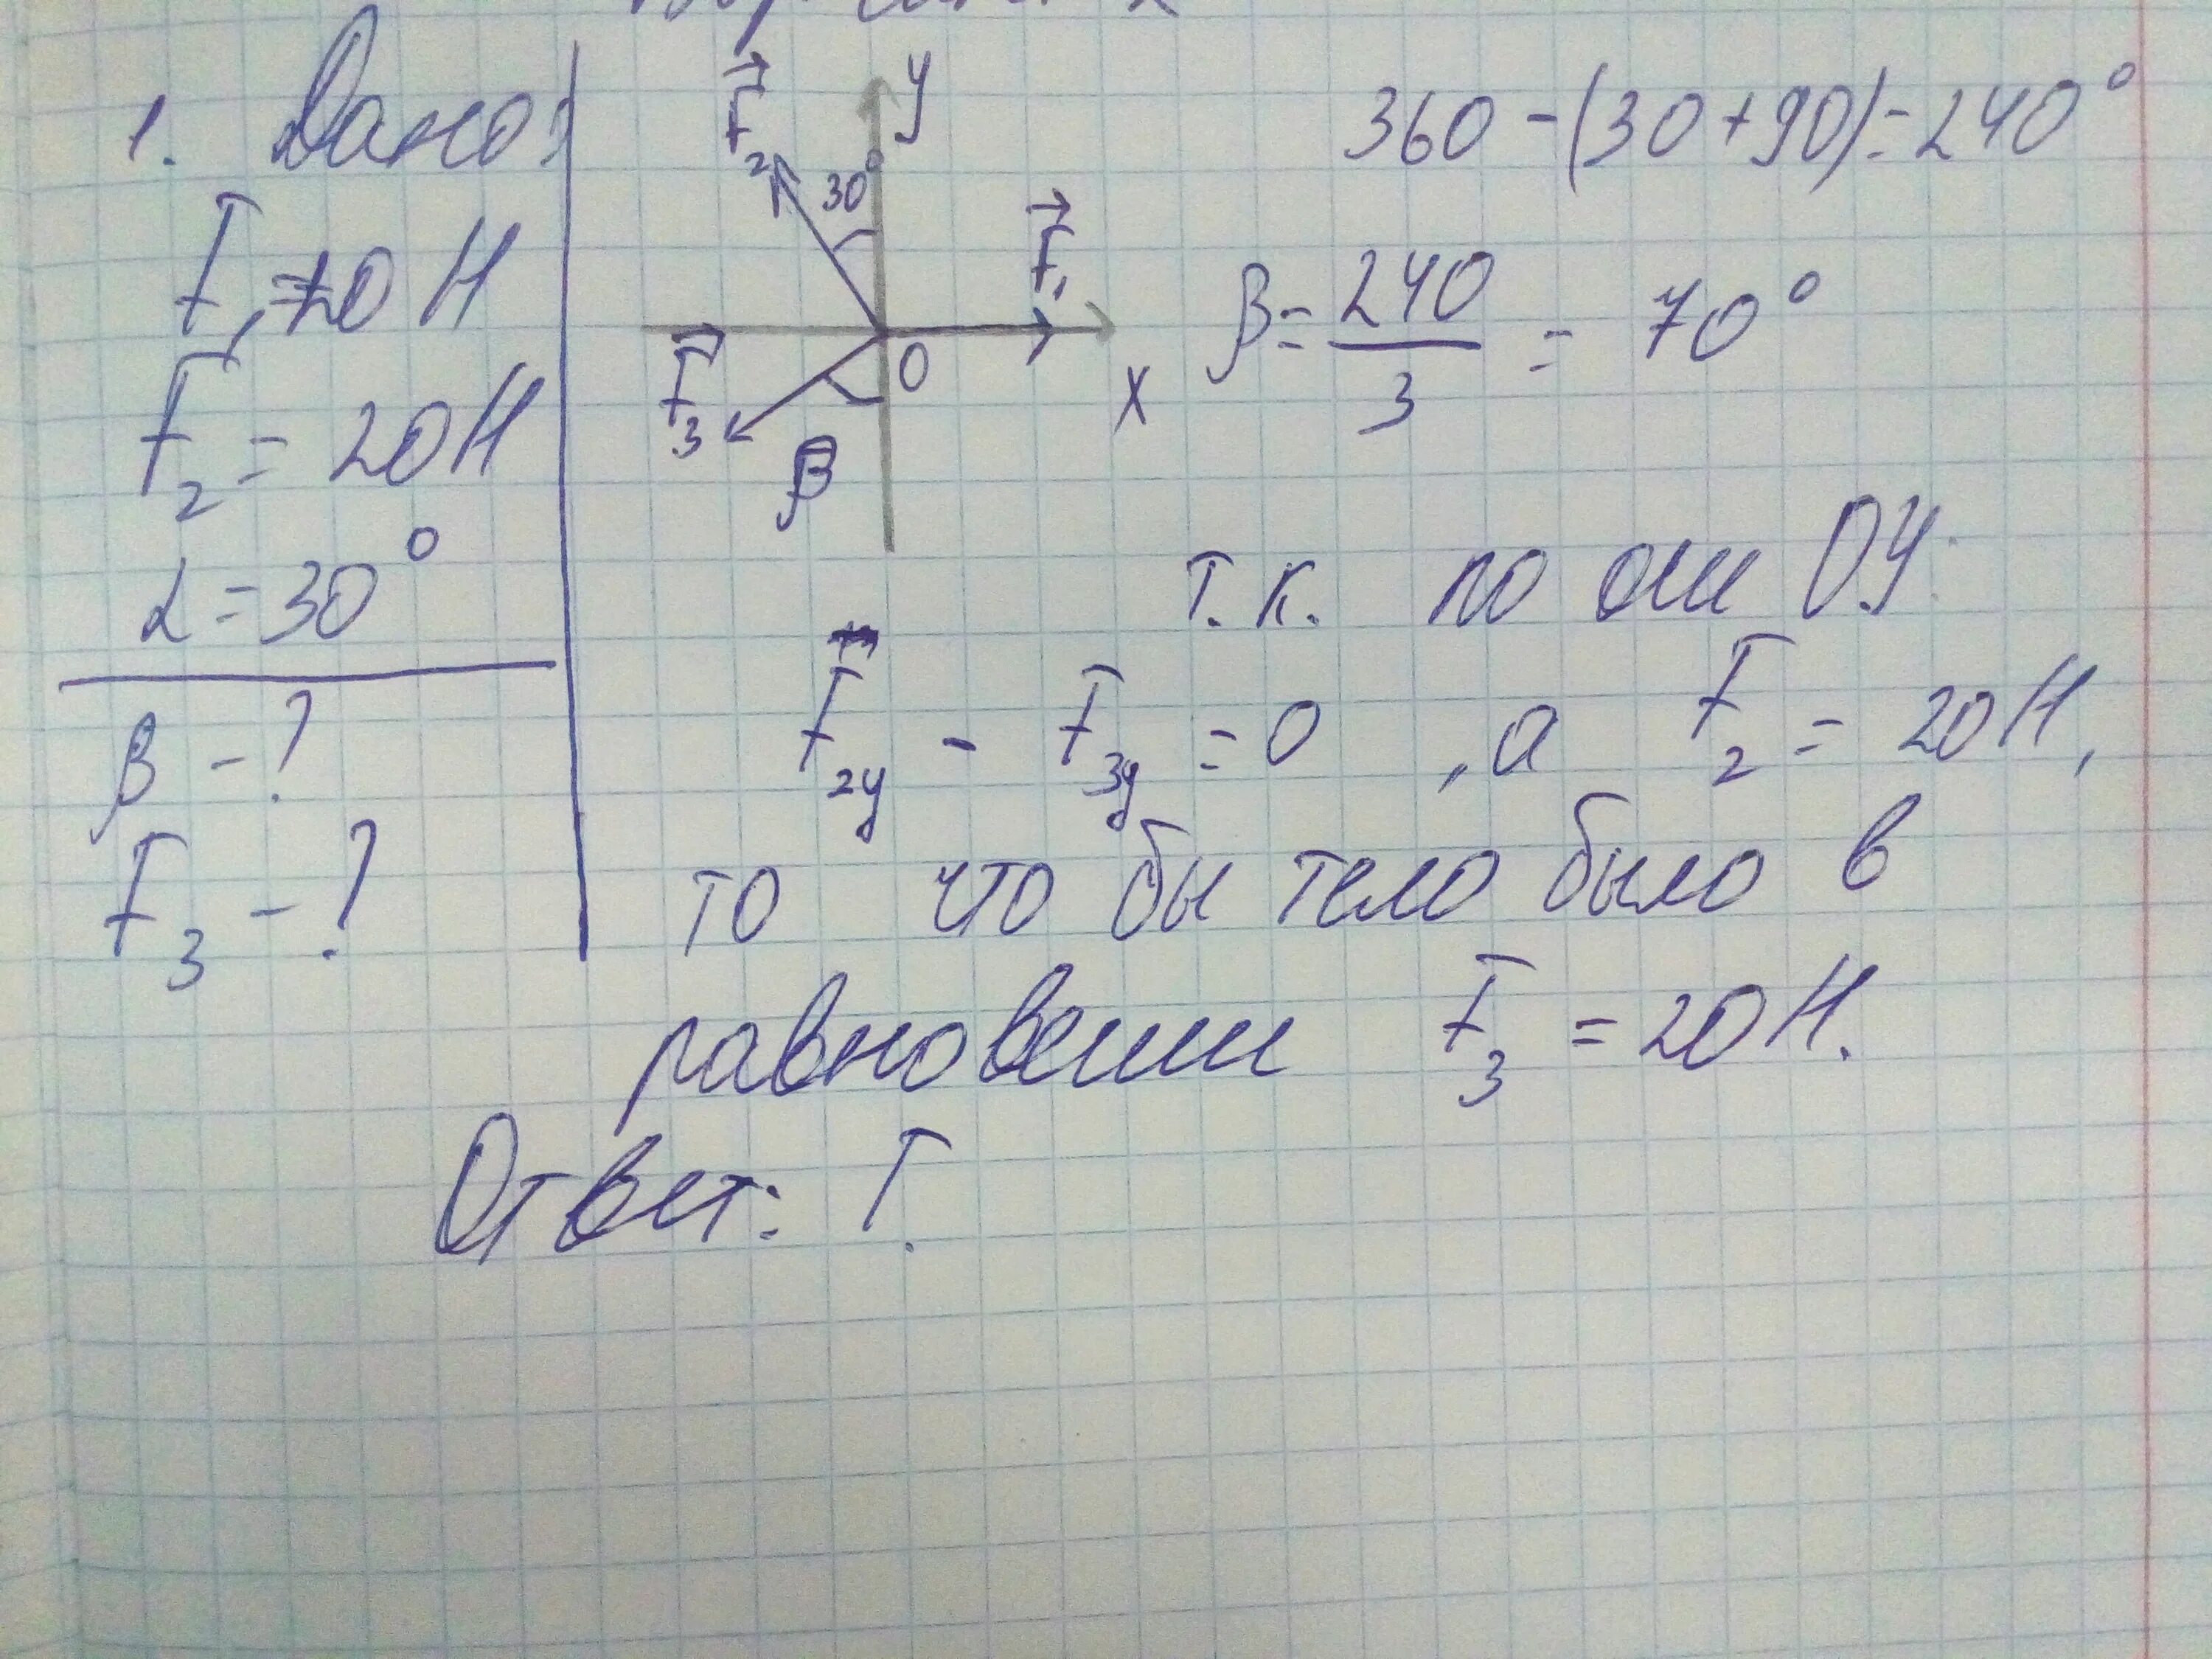 1. Дано:
F₁ = 20 Н
F₂ = 20 Н
α = 30°
β - ?
F₃ - ?
F₂ 30° y
F₁
F₃ O x
β
360 - (30 + 90) = 240°
β = 240/3 = 70°
т.к. по оси OY:
F₂y - F₃y = 0 , а F₂ = 20 Н,
то что бы тело было в
равновесии F₃ = 20 Н.
Ответ: Г.